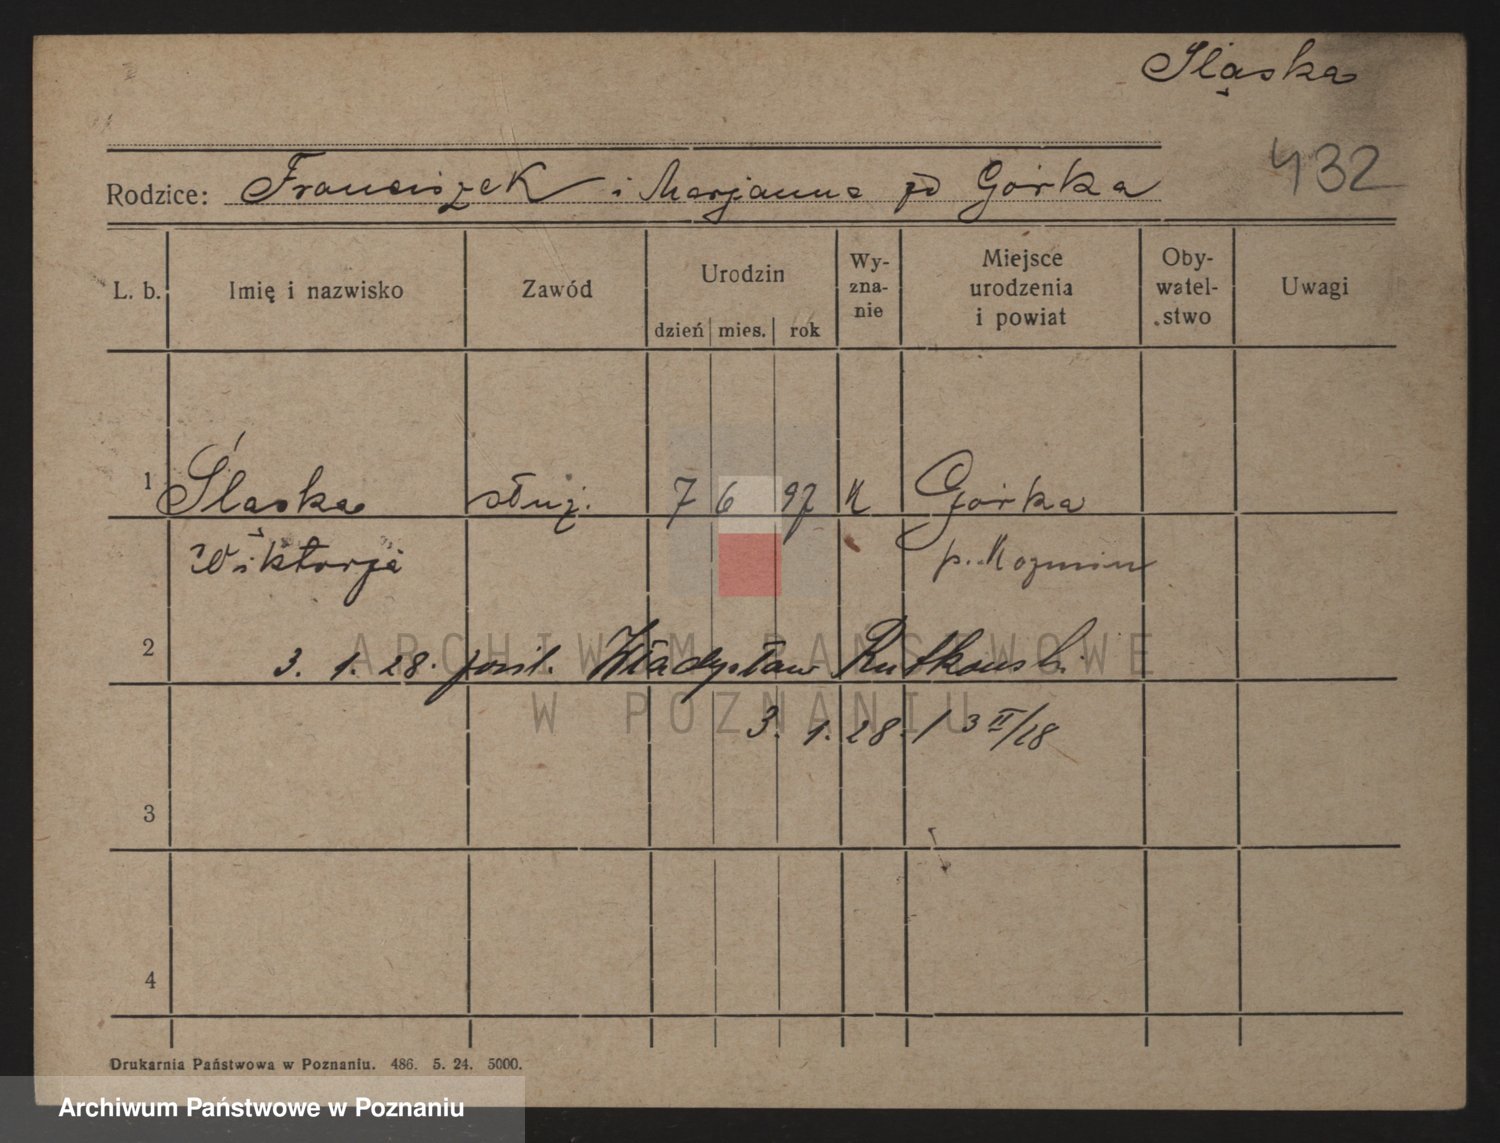 Śląska
432
Rodzice: Franciszek i Marjanna zd Górka
L. b. Imię i nazwisko Zawód Urodzin dzień mies. rok Wy-zna-nie Miejsce urodzenia i powiat Oby-watel-stwo Uwagi
1 Śląska służ. 7 6 97 K Górka
Wiktorja p. Kozmin
2 3. 1. 28. Władysław Rutkowski
3. 1. 28. / 3 II/28
3
4
Drukarnia Państwowa w Poznaniu. 486. 5. 24. 5000.
ARCHIWUM PAŃSTWOWE
W POZNANIU
Archiwum Państwowe w Poznaniu